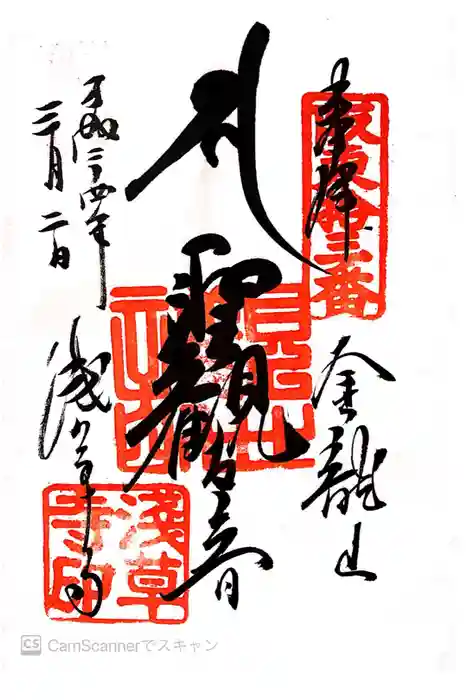 奉拝
金龍山
聖觀世音
平成二十四年
三月二日
浅草寺
淺草
寺印
CS CamScannerでスキャン